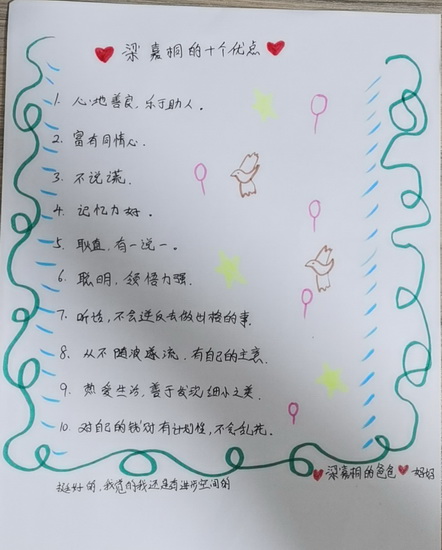 梁嘉桐的十个优点
1. 心地善良,乐于助人。
2. 富有同情心.
3. 不说谎.
4. 记忆力好.
5. 耿直,有一说一.
6. 聪明,领悟力强.
7. 听话,不会违反去做出格的事.
8. 从不随波逐流,有自己的主意.
9. 热爱生活,善于发现细小之美.
10. 对自己的钱财有计划性,不会乱花.
梁嘉桐的爸爸 好好
挺好的,我觉的我还是有进步空间的